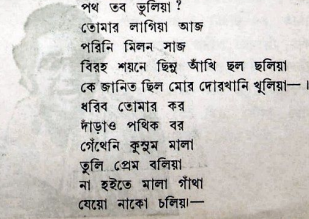 পথ তব ভুলিয়া ?
তোমার লাগিয়া আজ
পরিনি মিলন সাজ
বিরহ শয়নে ছিনু আঁখি ছল ছলিয়া
কে জানিত ছিল মোর দোরখানি খুলিয়া— ।
ধরিব তোমার কর
দাঁড়াও পথিক বর
গেঁথেনি কুসুম মালা
তুলি প্রেম বলিয়া
না হইতে মালা গাঁথা
যেয়ো নাকো চলিয়া—